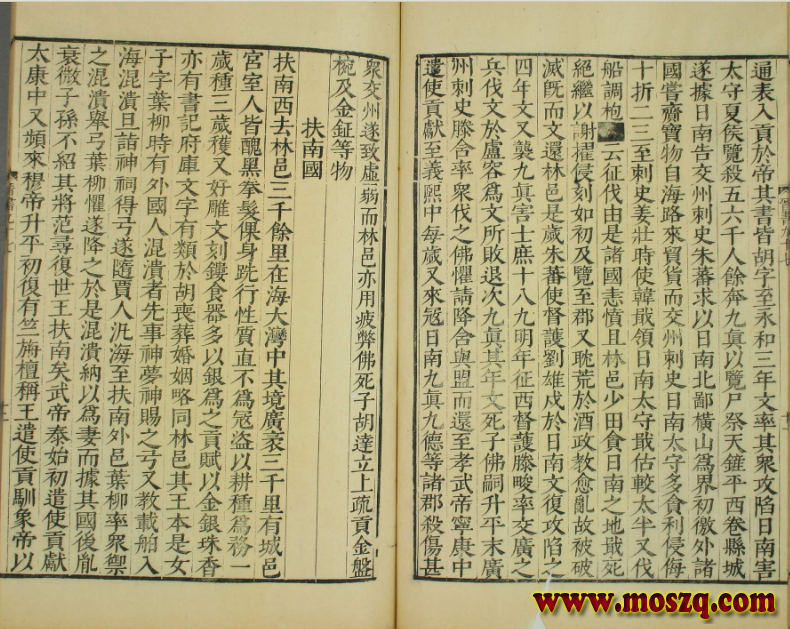 通表入貢於帝其書皆胡字至永和三年文率其衆攻陷日南害
太守夏侯覽殺五六千人餘奔九真以覽尸祭天鏟平西卷縣城
遂據日南告交州刺史朱蕃求以日南北鄙橫山爲界初徼外諸
國嘗齎寶物自海路來貿貨而交州刺史日南太守多貪利侵侮
十折二三至刺史姜壯時使韓戢領日南太守戢估較太半又伐
船調枹云征伐由是諸國恚憤且林邑少田貪日南之地戢死
絕繼以謝擢侵刻如初及覽至郡又耽荒於酒政教愈亂故被破
滅旣而文還林邑是歲朱蕃使督護劉雄戍於日南文復攻陷之
四年文又襲九真害士庶十八九明年征西督護滕畯率交廣之
兵伐文於盧容爲文所敗退次九真其年文死子佛嗣升平末廣
州刺史滕含率衆伐之佛懼請降含與盟而還至孝武帝寧康中
遣使貢獻至義熙中每歲又來寇日南九真九德等諸郡殺傷甚
衆交州遂致虛弱而林邑亦用疲弊佛死子胡達立上疏貢金盤
椀及金鉦等物
扶南國
扶南西去林邑三千餘里在海大灣中其境廣袤三千里有城邑
宮室人皆醜黑拳髮倮身跣行性質直不爲寇盜以耕種爲務一
歲種三歲穫又好雕文刻鏤食器多以銀爲之貢賦以金銀珠香
亦有書記府庫文字有類於胡喪葬婚姻略同林邑其王本是女
子字葉柳時有外國人混潰者先事神夢神賜之弓又教載舶入
海混潰旦詣神祠得弓遂隨賈人汎海至扶南外邑葉柳率衆禦
之混潰舉弓葉柳懼遂降之於是混潰納以爲妻而據其國後胤
衰微子孫不紹其將范尋復世王扶南矣武帝泰始初遣使貢獻
太康中又頻來穆帝升平初復有竺旃檀稱王遣使貢馴象帝以
www.moszq.com